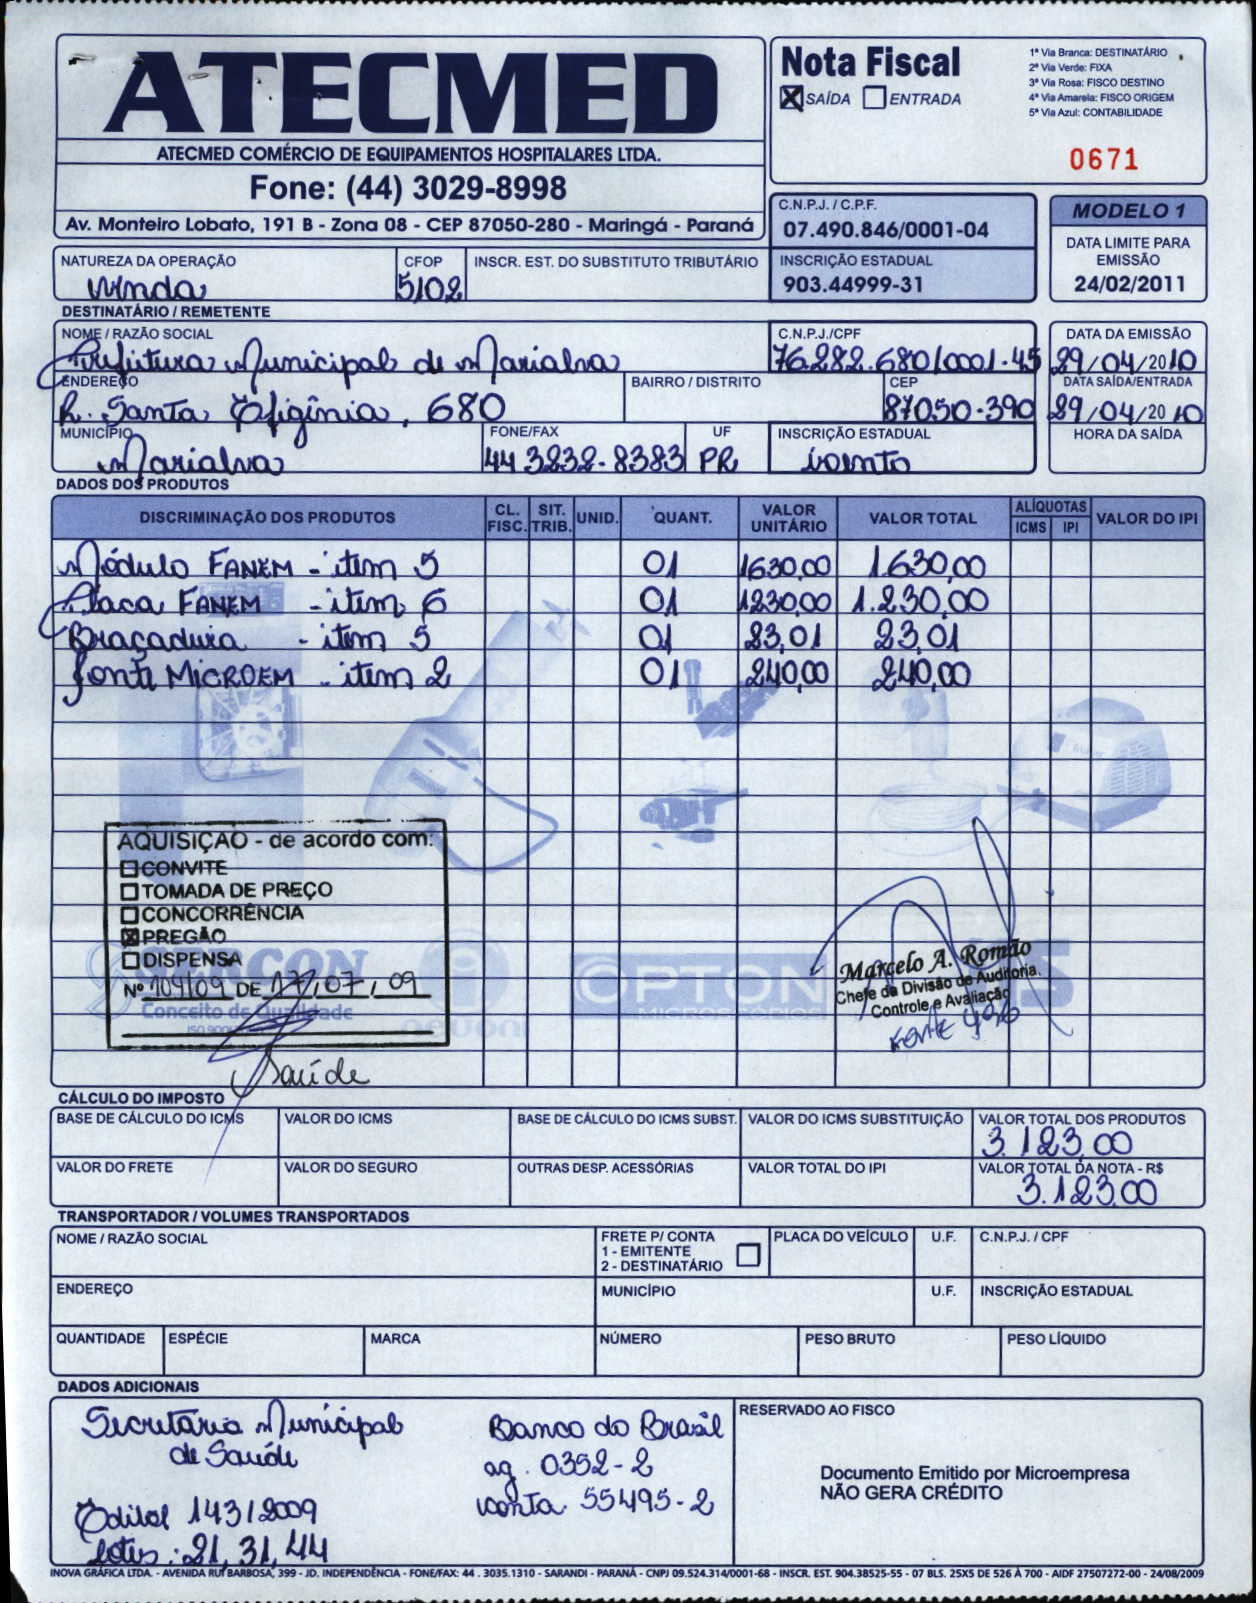 ATECMED
ATECMED COMÉRCIO DE EQUIPAMENTOS HOSPITALARES LTDA.
Fone: (44) 3029-8998
Av. Monteiro Lobato, 191 B - Zona 08 - CEP 87050-280 - Maringá - Paraná
Nota Fiscal
X SAÍDA ENTRADA
1ª Via Branca: DESTINATÁRIO
2ª Via Verde: FIXA
3ª Via Rosa: FISCO DESTINO
4ª Via Amarela: FISCO ORIGEM
5ª Via Azul: CONTABILIDADE
0671
C.N.P.J. / C.P.F.
07.490.846/0001-04
INSCRIÇÃO ESTADUAL
903.44999-31
MODELO 1
DATA LIMITE PARA
EMISSÃO
24/02/2011
NATUREZA DA OPERAÇÃO CFOP INSCR. EST. DO SUBSTITUTO TRIBUTÁRIO
Venda 5102
DESTINATÁRIO / REMETENTE
NOME / RAZÃO SOCIAL C.N.P.J./CPF DATA DA EMISSÃO
Prefeitura Municipal de Marialva 76.282.680/0001-45 29/04/2010
ENDEREÇO BAIRRO / DISTRITO CEP DATA SAÍDA/ENTRADA
R. Santa Efigênia, 680 87050-390 29/04/2010
MUNICÍPIO FONE/FAX UF INSCRIÇÃO ESTADUAL HORA DA SAÍDA
Marialva 44 3232-8383 PR isento
DADOS DOS PRODUTOS
DISCRIMINAÇÃO DOS PRODUTOS CL. FISC. SIT. TRIB. UNID. QUANT. VALOR UNITÁRIO VALOR TOTAL ALÍQUOTAS ICMS IPI VALOR DO IPI
Módulo FANEM - item 5 01 1630,00 1.630,00
Placa FANEM - item 6 01 1230,00 1.230,00
Braçadeira - item 5 01 23,01 23,01
fonte MICROEM - item 2 01 240,00 240,00
AQUISIÇÃO - de acordo com:
CONVITE
TOMADA DE PREÇO
CONCORRÊNCIA
X PREGÃO
DISPENSA
Nº 104/09 DE 17/07/09
SERCON
Conceito de Qualidade
OPTON
Saúde
Marcelo A. Romão
Chefe da Divisão de Auditoria,
Controle e Avaliação
FONTE 496
CÁLCULO DO IMPOSTO
BASE DE CÁLCULO DO ICMS VALOR DO ICMS BASE DE CÁLCULO DO ICMS SUBST. VALOR DO ICMS SUBSTITUIÇÃO VALOR TOTAL DOS PRODUTOS
3.123,00
VALOR DO FRETE VALOR DO SEGURO OUTRAS DESP. ACESSÓRIAS VALOR TOTAL DO IPI VALOR TOTAL DA NOTA - R$
3.123,00
TRANSPORTADOR / VOLUMES TRANSPORTADOS
NOME / RAZÃO SOCIAL FRETE P/ CONTA PLACA DO VEÍCULO U.F. C.N.P.J. / CPF
1 - EMITENTE
2 - DESTINATÁRIO
ENDEREÇO MUNICÍPIO U.F. INSCRIÇÃO ESTADUAL
QUANTIDADE ESPÉCIE MARCA NÚMERO PESO BRUTO PESO LÍQUIDO
DADOS ADICIONAIS
Secretaria Municipal
de Saúde
Edital 143/2009
lotes: 21, 31, 44
Banco do Brasil
ag. 0352-2
conta 55495-2
RESERVADO AO FISCO
Documento Emitido por Microempresa
NÃO GERA CRÉDITO
INOVA GRÁFICA LTDA. - AVENIDA RUI BARBOSA, 399 - JD. INDEPENDÊNCIA - FONE/FAX: 44 . 3035.1310 - SARANDI - PARANÁ - CNPJ 09.524.314/0001-68 - INSCR. EST. 904.38525-55 - 07 BLS. 25X5 DE 526 À 700 - AIDF 27507272-00 - 24/08/2009